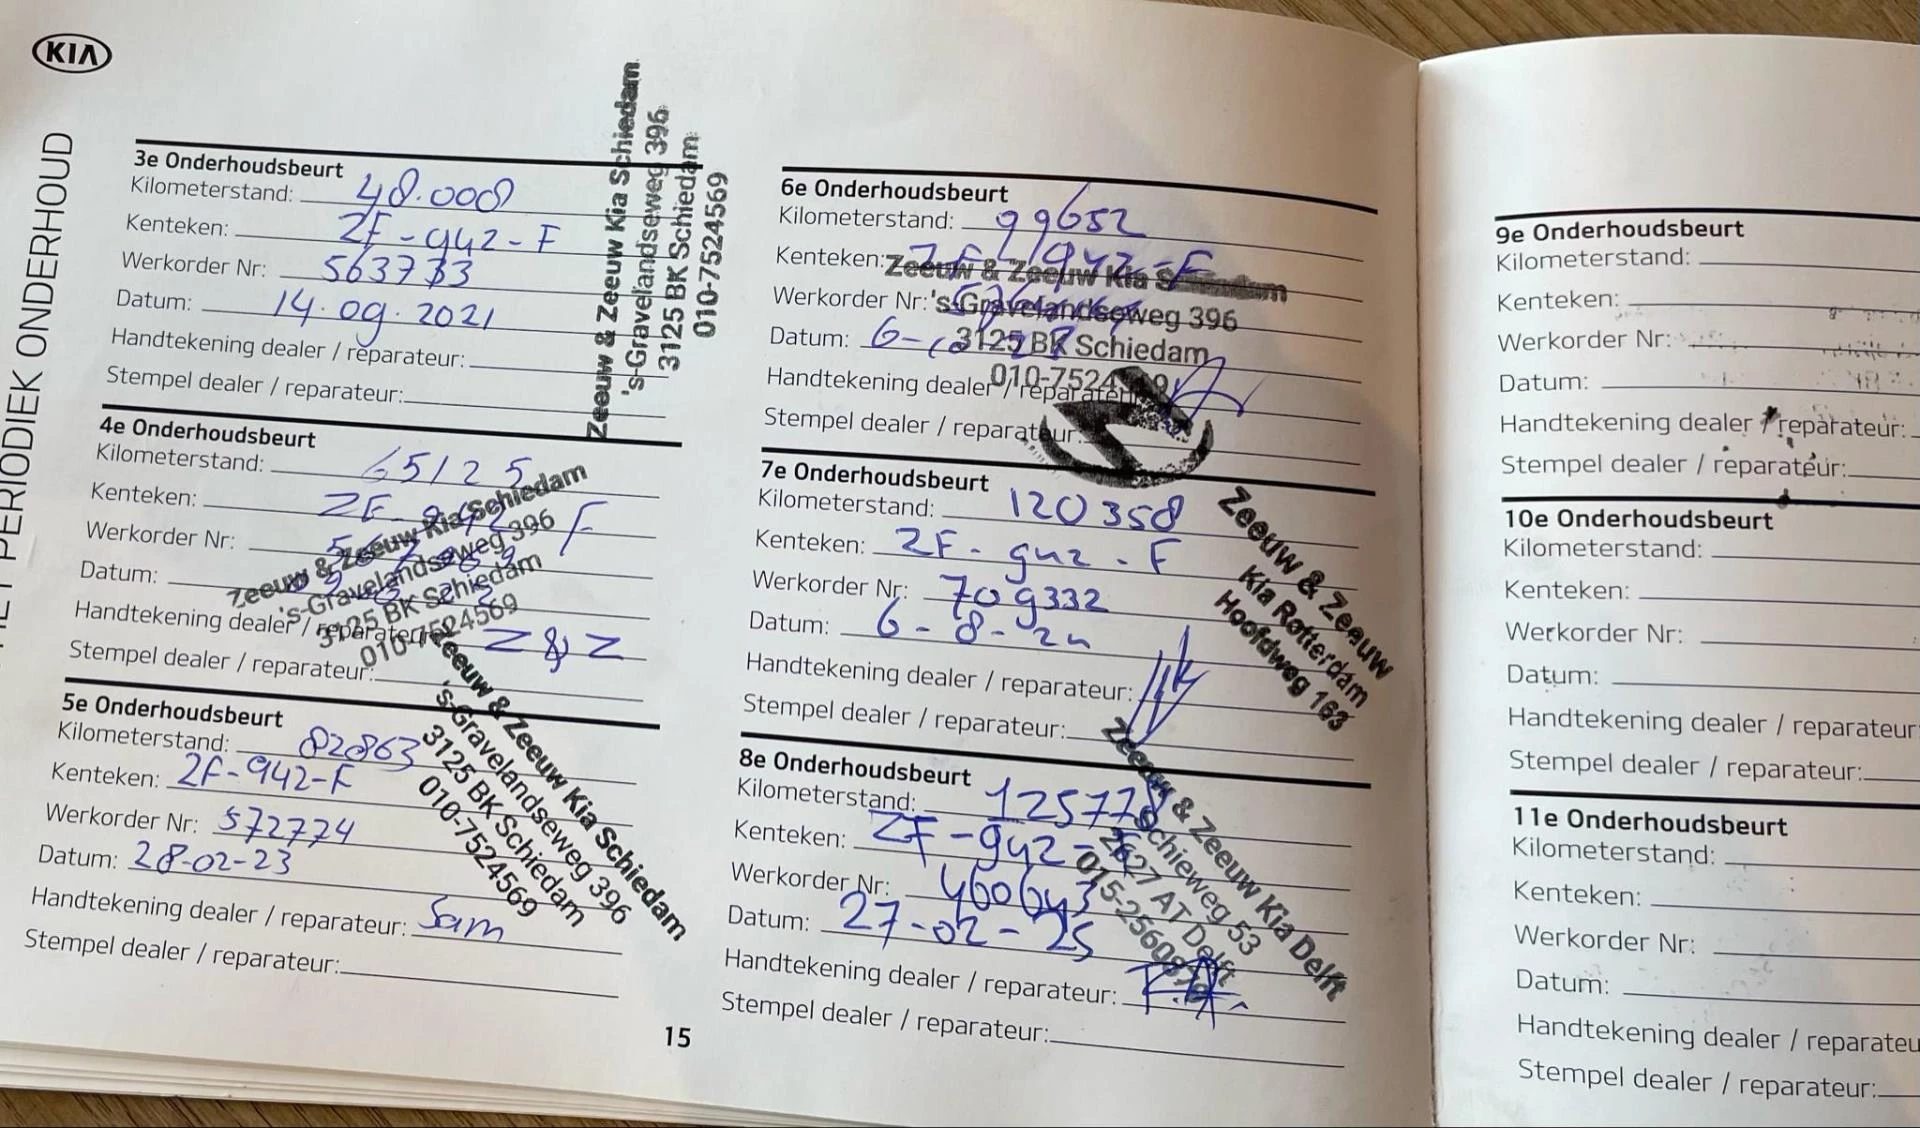 KIA
PERIODIEK ONDERHOUD
3e Onderhoudsbeurt
Kilometerstand: 48.008
Kenteken: ZF-942-F
Werkorder Nr: 563733
Datum: 14.09.2021
Handtekening dealer / reparateur:
Stempel dealer / reparateur:
Zeeuw & Zeeuw Kia Schiedam
's-Gravelandseweg 396
3125 BK Schiedam
010-7524569
4e Onderhoudsbeurt
Kilometerstand: 65125
Kenteken: ZF-942-F
Werkorder Nr:
Datum:
Handtekening dealer / reparateur: Z&Z
Stempel dealer / reparateur:
Zeeuw & Zeeuw Kia Schiedam
's-Gravelandseweg 396
3125 BK Schiedam
010-7524569
5e Onderhoudsbeurt
Kilometerstand: 82863
Kenteken: ZF-942-F
Werkorder Nr: 572774
Datum: 28-02-23
Handtekening dealer / reparateur: Sam
Stempel dealer / reparateur:
Zeeuw & Zeeuw Kia Schiedam
's-Gravelandseweg 396
3125 BK Schiedam
010-7524569
15
6e Onderhoudsbeurt
Kilometerstand: 99652
Kenteken: ZF-942-F
Werkorder Nr:
Datum:
Handtekening dealer / reparateur:
Stempel dealer / reparateur:
Zeeuw & Zeeuw Kia Schiedam
's-Gravelandseweg 396
3125 BK Schiedam
7e Onderhoudsbeurt
Kilometerstand: 120358
Kenteken: ZF-942-F
Werkorder Nr: 709332
Datum: 6-8-24
Handtekening dealer / reparateur:
Stempel dealer / reparateur:
Zeeuw & Zeeuw
Kia Rotterdam
Hoofdweg 163
8e Onderhoudsbeurt
Kilometerstand: 125778
Kenteken: ZF-942-F
Werkorder Nr: 460643
Datum: 27-02-25
Handtekening dealer / reparateur:
Stempel dealer / reparateur:
Zeeuw & Zeeuw Kia Delft
Schieweg 53
2627 AT Delft
9e Onderhoudsbeurt
Kilometerstand:
Kenteken:
Werkorder Nr:
Datum:
Handtekening dealer / reparateur:
Stempel dealer / reparateur:
10e Onderhoudsbeurt
Kilometerstand:
Kenteken:
Werkorder Nr:
Datum:
Handtekening dealer / reparateur
Stempel dealer / reparateur:
11e Onderhoudsbeurt
Kilometerstand:
Kenteken:
Werkorder Nr:
Datum:
Handtekening dealer / reparateu
Stempel dealer / reparateur: